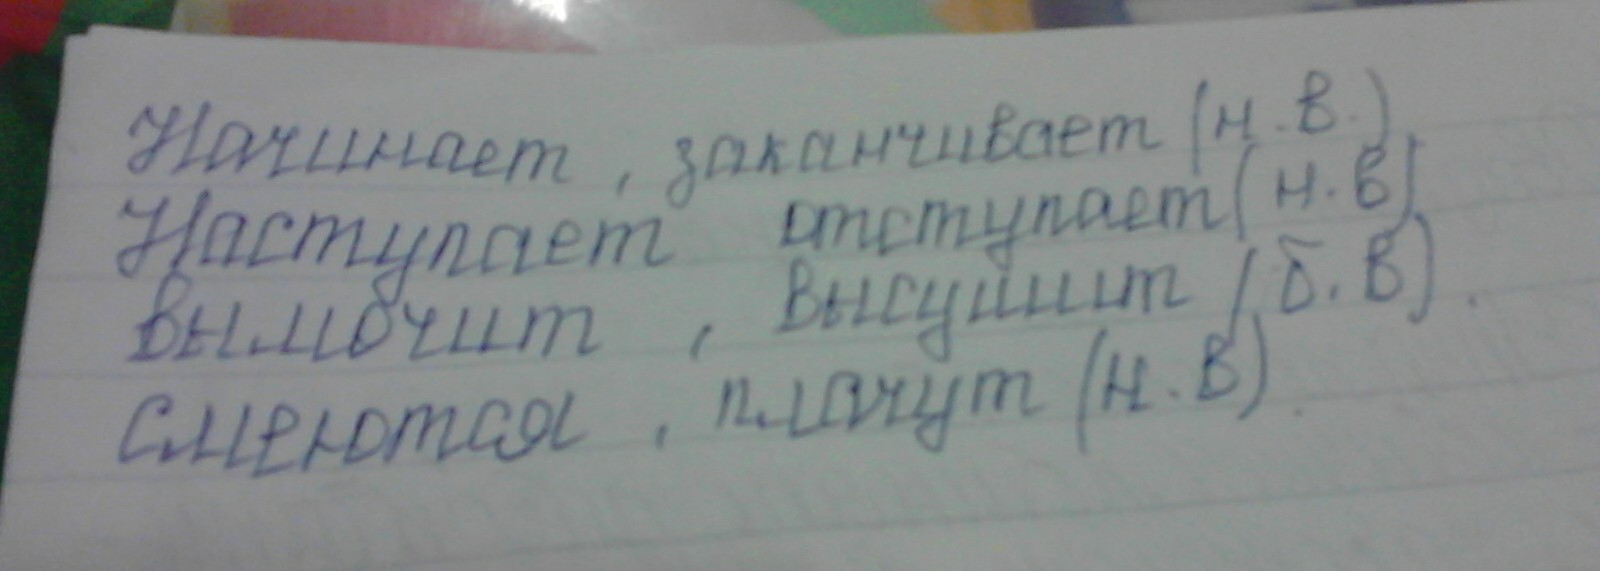 Начинает, заканчивает (н.в.)
Наступает отступает (н.в)
вымочит, высушит (б.в).
смеются, плачут (н.в).